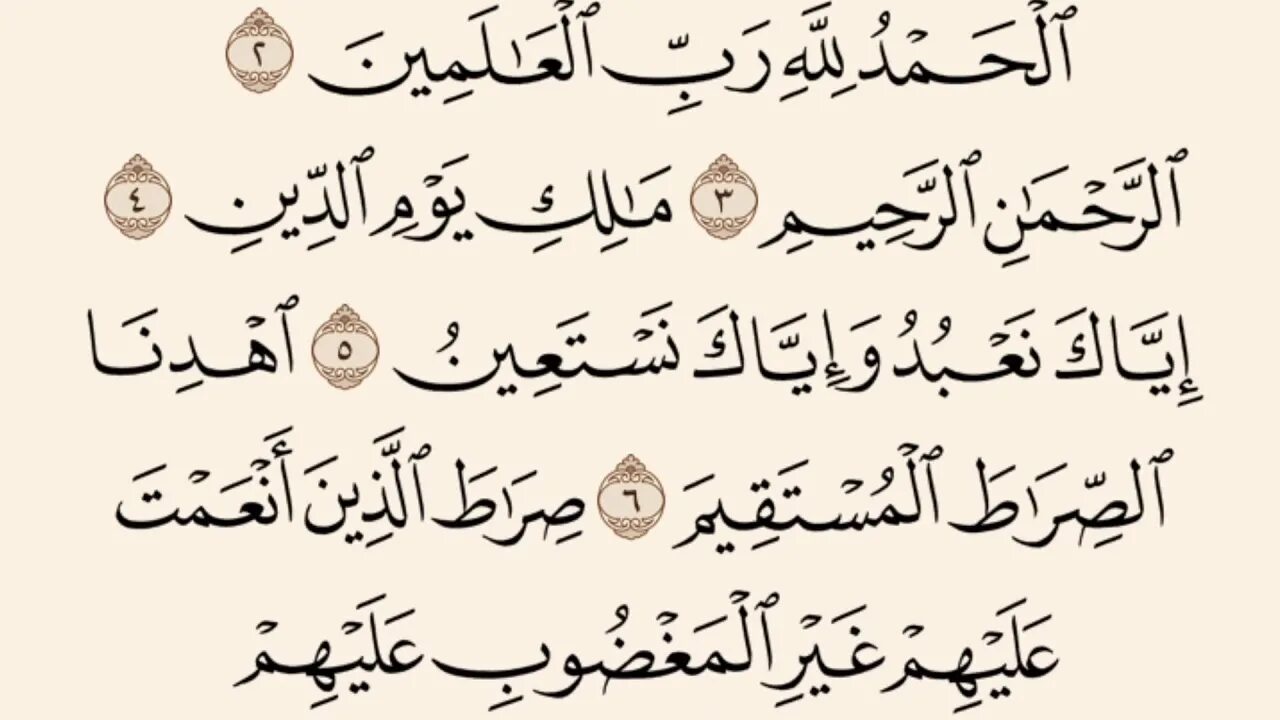 ٱلْحَمْدُ لِلَّهِ رَبِّ ٱلْعَـٰلَمِينَ ٢
ٱلرَّحْمَـٰنِ ٱلرَّحِيمِ ٣ مَـٰلِكِ يَوْمِ ٱلدِّينِ ٤
إِيَّاكَ نَعْبُدُ وَإِيَّاكَ نَسْتَعِينُ ٥ ٱهْدِنَا
ٱلصِّرَٰطَ ٱلْمُسْتَقِيمَ ٦ صِرَٰطَ ٱلَّذِينَ أَنْعَمْتَ
عَلَيْهِمْ غَيْرِ ٱلْمَغْضُوبِ عَلَيْهِمْ